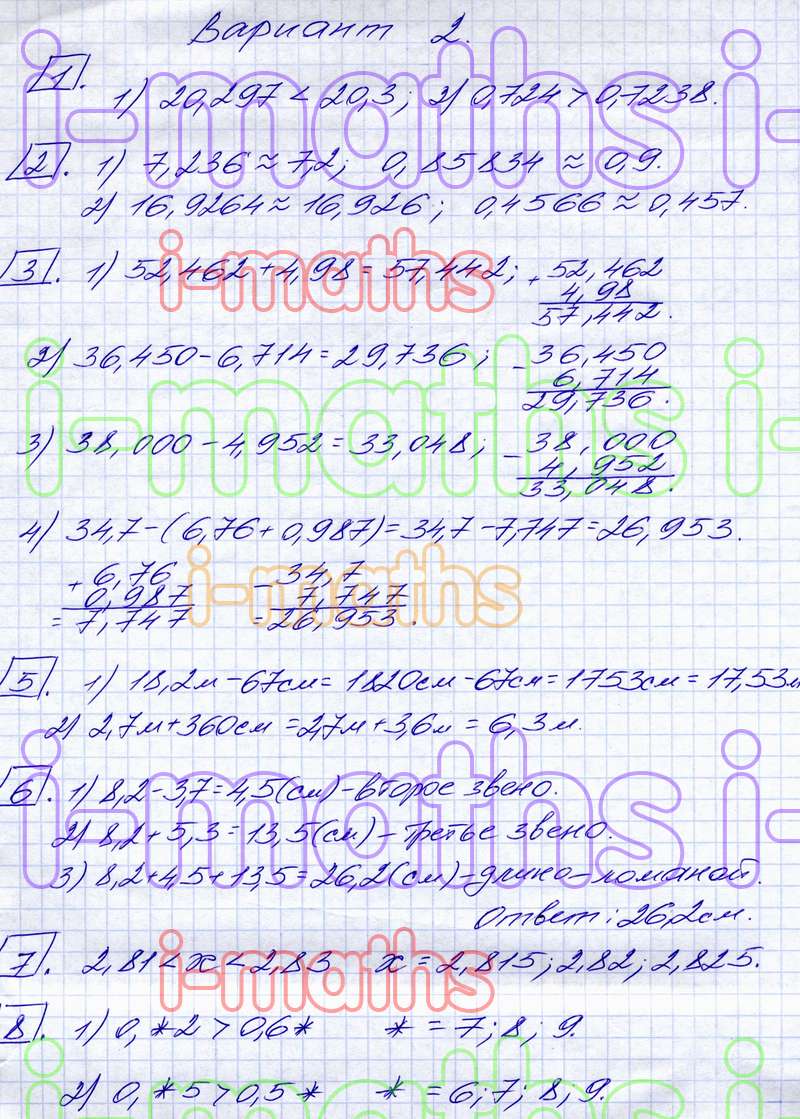 Вариант 2.
1. 1) 20,297 < 20,3; 2) 0,724 > 0,7238.
2. 1) 7,236 ≈ 7,2; 0,85834 ≈ 0,9.
2) 16,9264 ≈ 16,926; 0,4566 ≈ 0,457.
3. 1) 52,462 + 4,98 = 57,442; + 52,462
4,98
57,442.
2) 36,450 - 6,714 = 29,736; - 36,450
6,714
29,736.
3) 38,000 - 4,952 = 33,048; - 38,000
4,952
33,048.
4) 34,7 - (6,76 + 0,987) = 34,7 - 7,747 = 26,953.
+ 6,76 - 34,7
0,987 7,747
= 7,747 = 26,953.
5. 1) 18,2м - 67см = 1820см - 67см = 1753см = 17,53м
2) 2,7м + 360см = 2,7м + 3,6м = 6,3м.
6. 1) 8,2 - 3,7 = 4,5 (см) - второе звено.
2) 8,2 + 5,3 = 13,5 (см) - третье звено.
3) 8,2 + 4,5 + 13,5 = 26,2 (см) - длина ломаной.
Ответ: 26,2см.
7. 2,81 < x < 2,83 x = 2,815; 2,82; 2,825.
8. 1) 0,*2 > 0,6* * = 7; 8; 9.
2) 0,*5 > 0,5* * = 6; 7; 8; 9.
i-maths i
i-maths
i-maths i
i-maths
i-maths i
i-maths
i-maths i